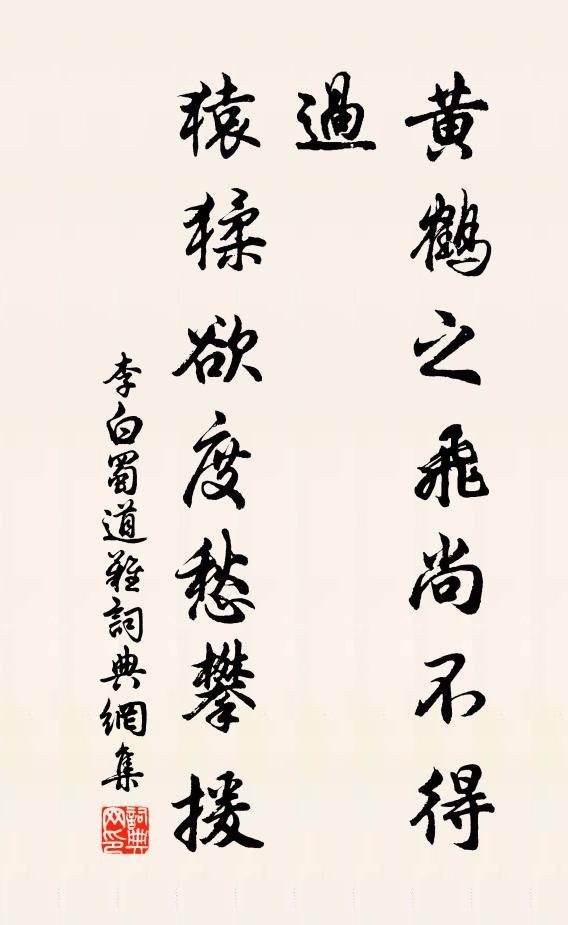 黃鶴之飛尚不得
過
猿猱欲度愁攀援
李白蜀道難詞典網集
詞典
網印